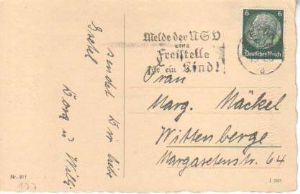 Melde der NSV
eine
Freistelle
für ein Kind!
6 6
Deutsches Reich
Frau
Marg. Mäckel
Wittenberge
Margaretenstr. 64
sendet Dir liebe
Nr. 811